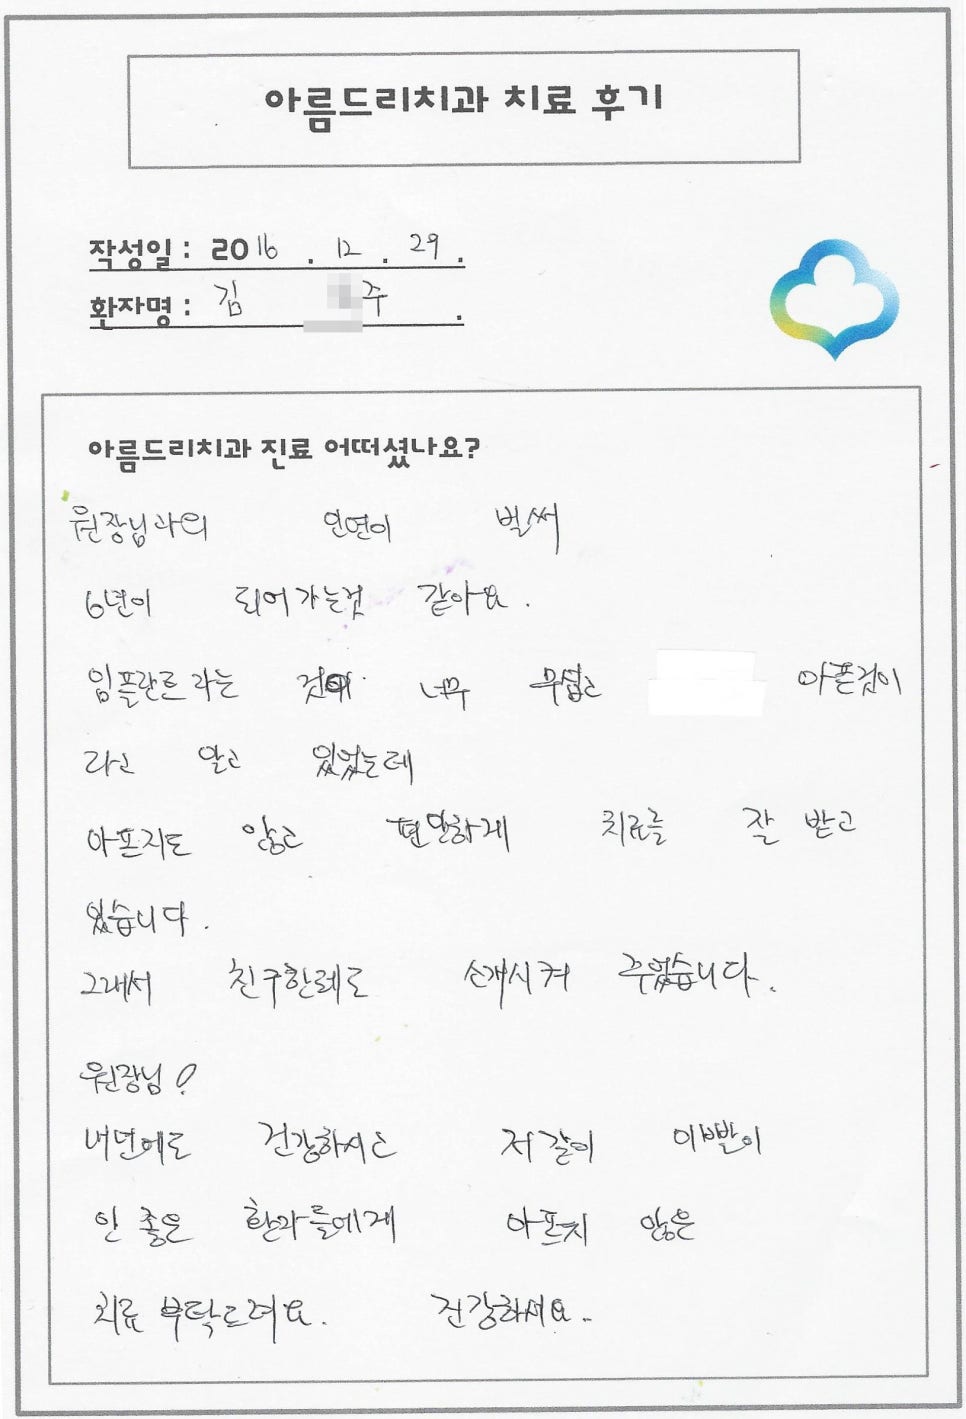 아름드리치과 치료 후기
작성일 : 2016 . 12 . 29 .
환자명 : 김 주 .
아름드리치과 진료 어떠셨나요?
원장님과의 인연이 벌써
6년이 되어가는것 같아요.
임플란트라는 것이 너무 무섭고 아픈것이
라고 알고 있었는데
아프지도 않고 편안하게 치료를 잘 받고
있습니다.
그래서 친구한테도 소개시켜 주었습니다.
원장님!
내년에도 건강하시고 저같이 이빨이
안 좋은 환자들에게 아프지 않은
치료 부탁드려요. 건강하세요..